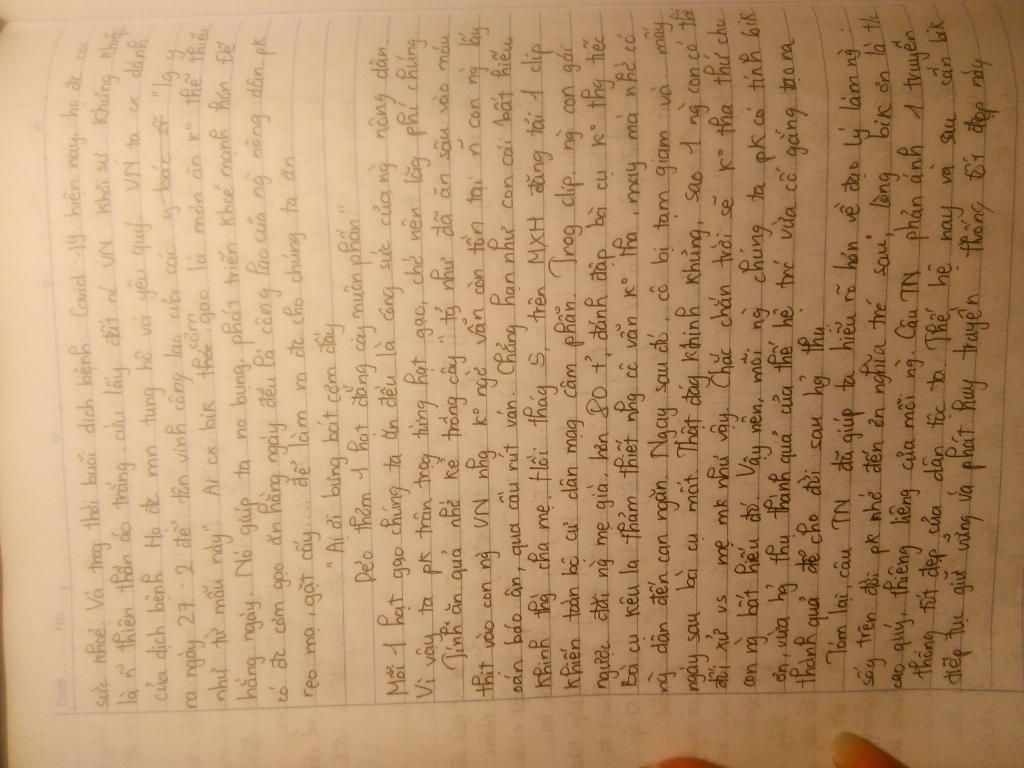 Date No.
sức khoẻ. Và trog thời buổi dịch bệnh Covid-19 hiện nay, họ đc coi
là n~ thiên thần áo trắng, cứu lấy đất nc VN khỏi sự khủng hoảng
của dịch bệnh. Họ đc mn tung hô và yêu quý. VN ta cx dành
ra ngày 27-2 để tôn vinh công lao của các y bác sĩ "lg y
như từ mẫu này". Ai cx bik thóc cơm gạo là món ăn k° thể thiếu
hằng ngày. Nó giúp ta no bụng, phát triển khoẻ mạnh hơn. Để
có đc cơm gạo ăn hằng ngày đều là công lao của ng nông dân. pk
reo mạ, gặt cấy... để làm ra đc cho chúng ta ăn...
"Ai ơi bưng bát cơm đầy
Dẻo thơm 1 hạt đắng cay muôn phần"
Mỗi 1 hạt gạo chúng ta ăn đều là công sức của ng nông dân.
Vì vậy ta pk trân trọg từng hạt gạo, chớ nên lãg phí chúng.
Tính "ăn quả nhớ kẻ trồng cây" tự như đã ăn sâu vào máu
thịt vào con ng VN nhg k° ngờ vẫn còn tồn tại n~ con ng lấy
oán báo ân, qua cầu rút ván. Chẳng hạn như con cái bất hiếu
khinh thg cha mẹ. Hồi thág 5, trên MXH đăng tải 1 clip
khiến toàn bộ cư dân mạg căm phẫn. Trog clip, ng con gái
ngược đãi ng mẹ già, hơn 80t, đánh đập bà cụ k° thg tiếc.
Bà cụ kêu la thảm thiết nhg cô vẫn k° tha, may mà nhờ có
ng dân đến can ngăn. Ngay sau đó, cô bị tạm giam và... mấy
ngày sau bà cụ mất. Thật đág khinh khủng, sao 1 ng con có thể
đối xử vs mẹ mk như vậy. Chắc chắn trời sẽ k° tha thứ cho
con ng bất hiếu đó. Vậy nên, mỗi ng chúng ta pk có tính bik
ơn, vừa hg thụ thành quả của thế hệ trc vừa cố gắng tạo ra
thành quả để cho đời sau hg thụ
Tóm lại, câu TN đã giúp ta hiểu rõ hơn về đạo lý làm ng:
sốg trên đời pk nhớ đến ân nghĩa trc sau, lòng bik ơn là t/c
cao quý, thiêng liêng của mỗi ng. Câu TN phản ánh 1 truyền
thống tốt đẹp của dân tộc ta. Thế hệ nay và sau cần bik
tiếp tục giữ vững và phát huy truyền thống tốt đẹp này.